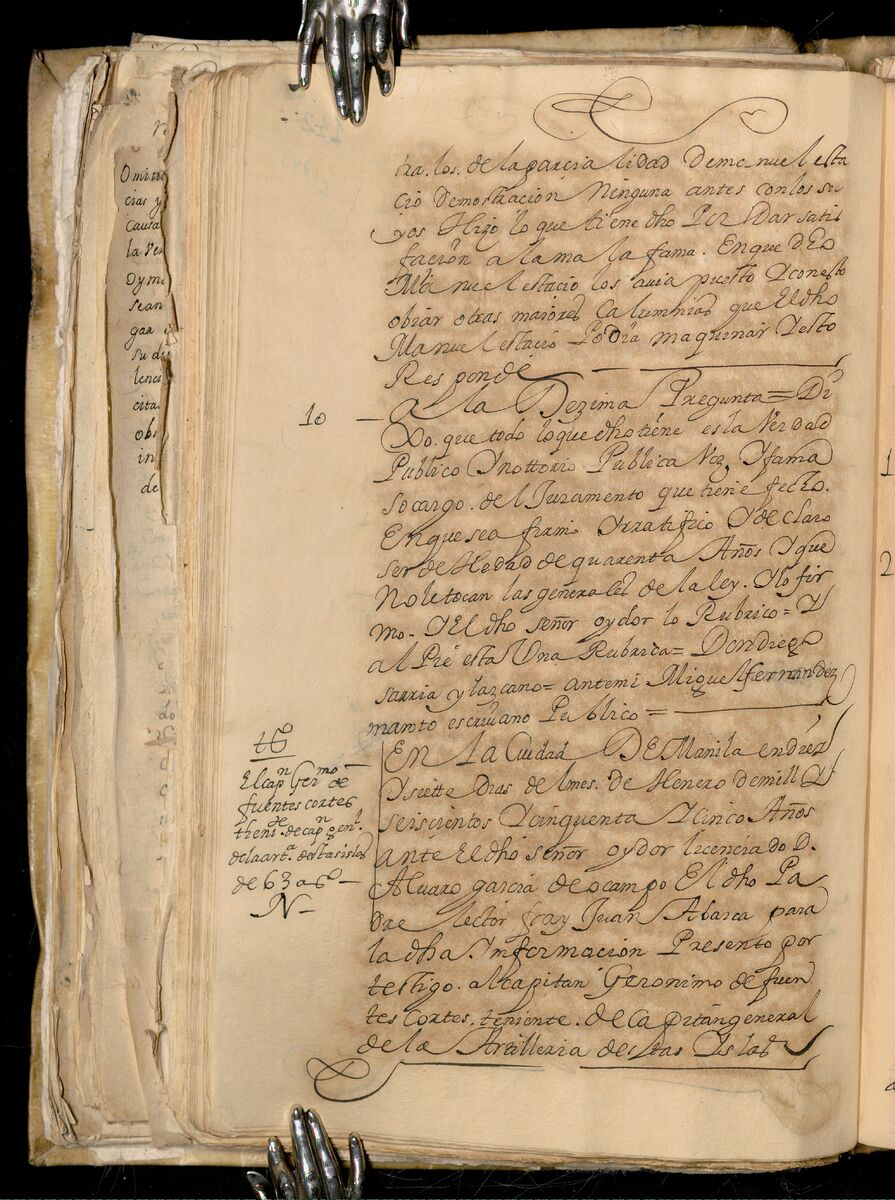 tra. los. de la parcialidad De manuel esta
cio Demostracion Ninguna antes con los su
yos Hizo lo que tiene dho Por Dar satis
facion a la mala fama. En que dho
Manuel estacio los avia puesto Y con esto
obiar otras maiores Calumnias que El dho
Manuel estacio Podia maquinar Y esto
Responde
10
A la Dezima Pregunta = Di
Xo. que todo lo que dho tiene es la Verdad
Publico Y nottorio Publica Voz, Y fama
so cargo. del Juramento que tiene fecho.
En que sea firmo Y rratifico Y declaro
ser de Hedad de quarenta Años Y que
No le tocan las generales de la ley. Y lo fir
mo. Y El dho señor oydor lo Rubrico = Y
al Pie esta Una Rubrica = Don diego
sarria y lazcano = ante mi Miguel fernandez
maroto escrivano Publico =
tgo
El capn Germo de
fuentes cortes
theni.de de capn genl.
de la arta. de estas islas
de 63 as
N
En la Ciudad De Manila en diez
Y siette Dias del mes. de Henero de mill Y
seiscientos Y cinquenta Y cinco Años
ante El dho señor oydor licenciado D.
Alvaro garcia de ocampo El dho Pa
dre lector fray Juan Abarca para
la dha. Ynformacion Presento por
testigo. al capitan Geronimo de fuen
tes Cortes. teniente. de Capitan general
de la Artilleria de estas Yslas
Omitie
cias y
Causa
la Ver
Dy me
sean
gar
su di
lenci
cita
obs
in
de
1
2